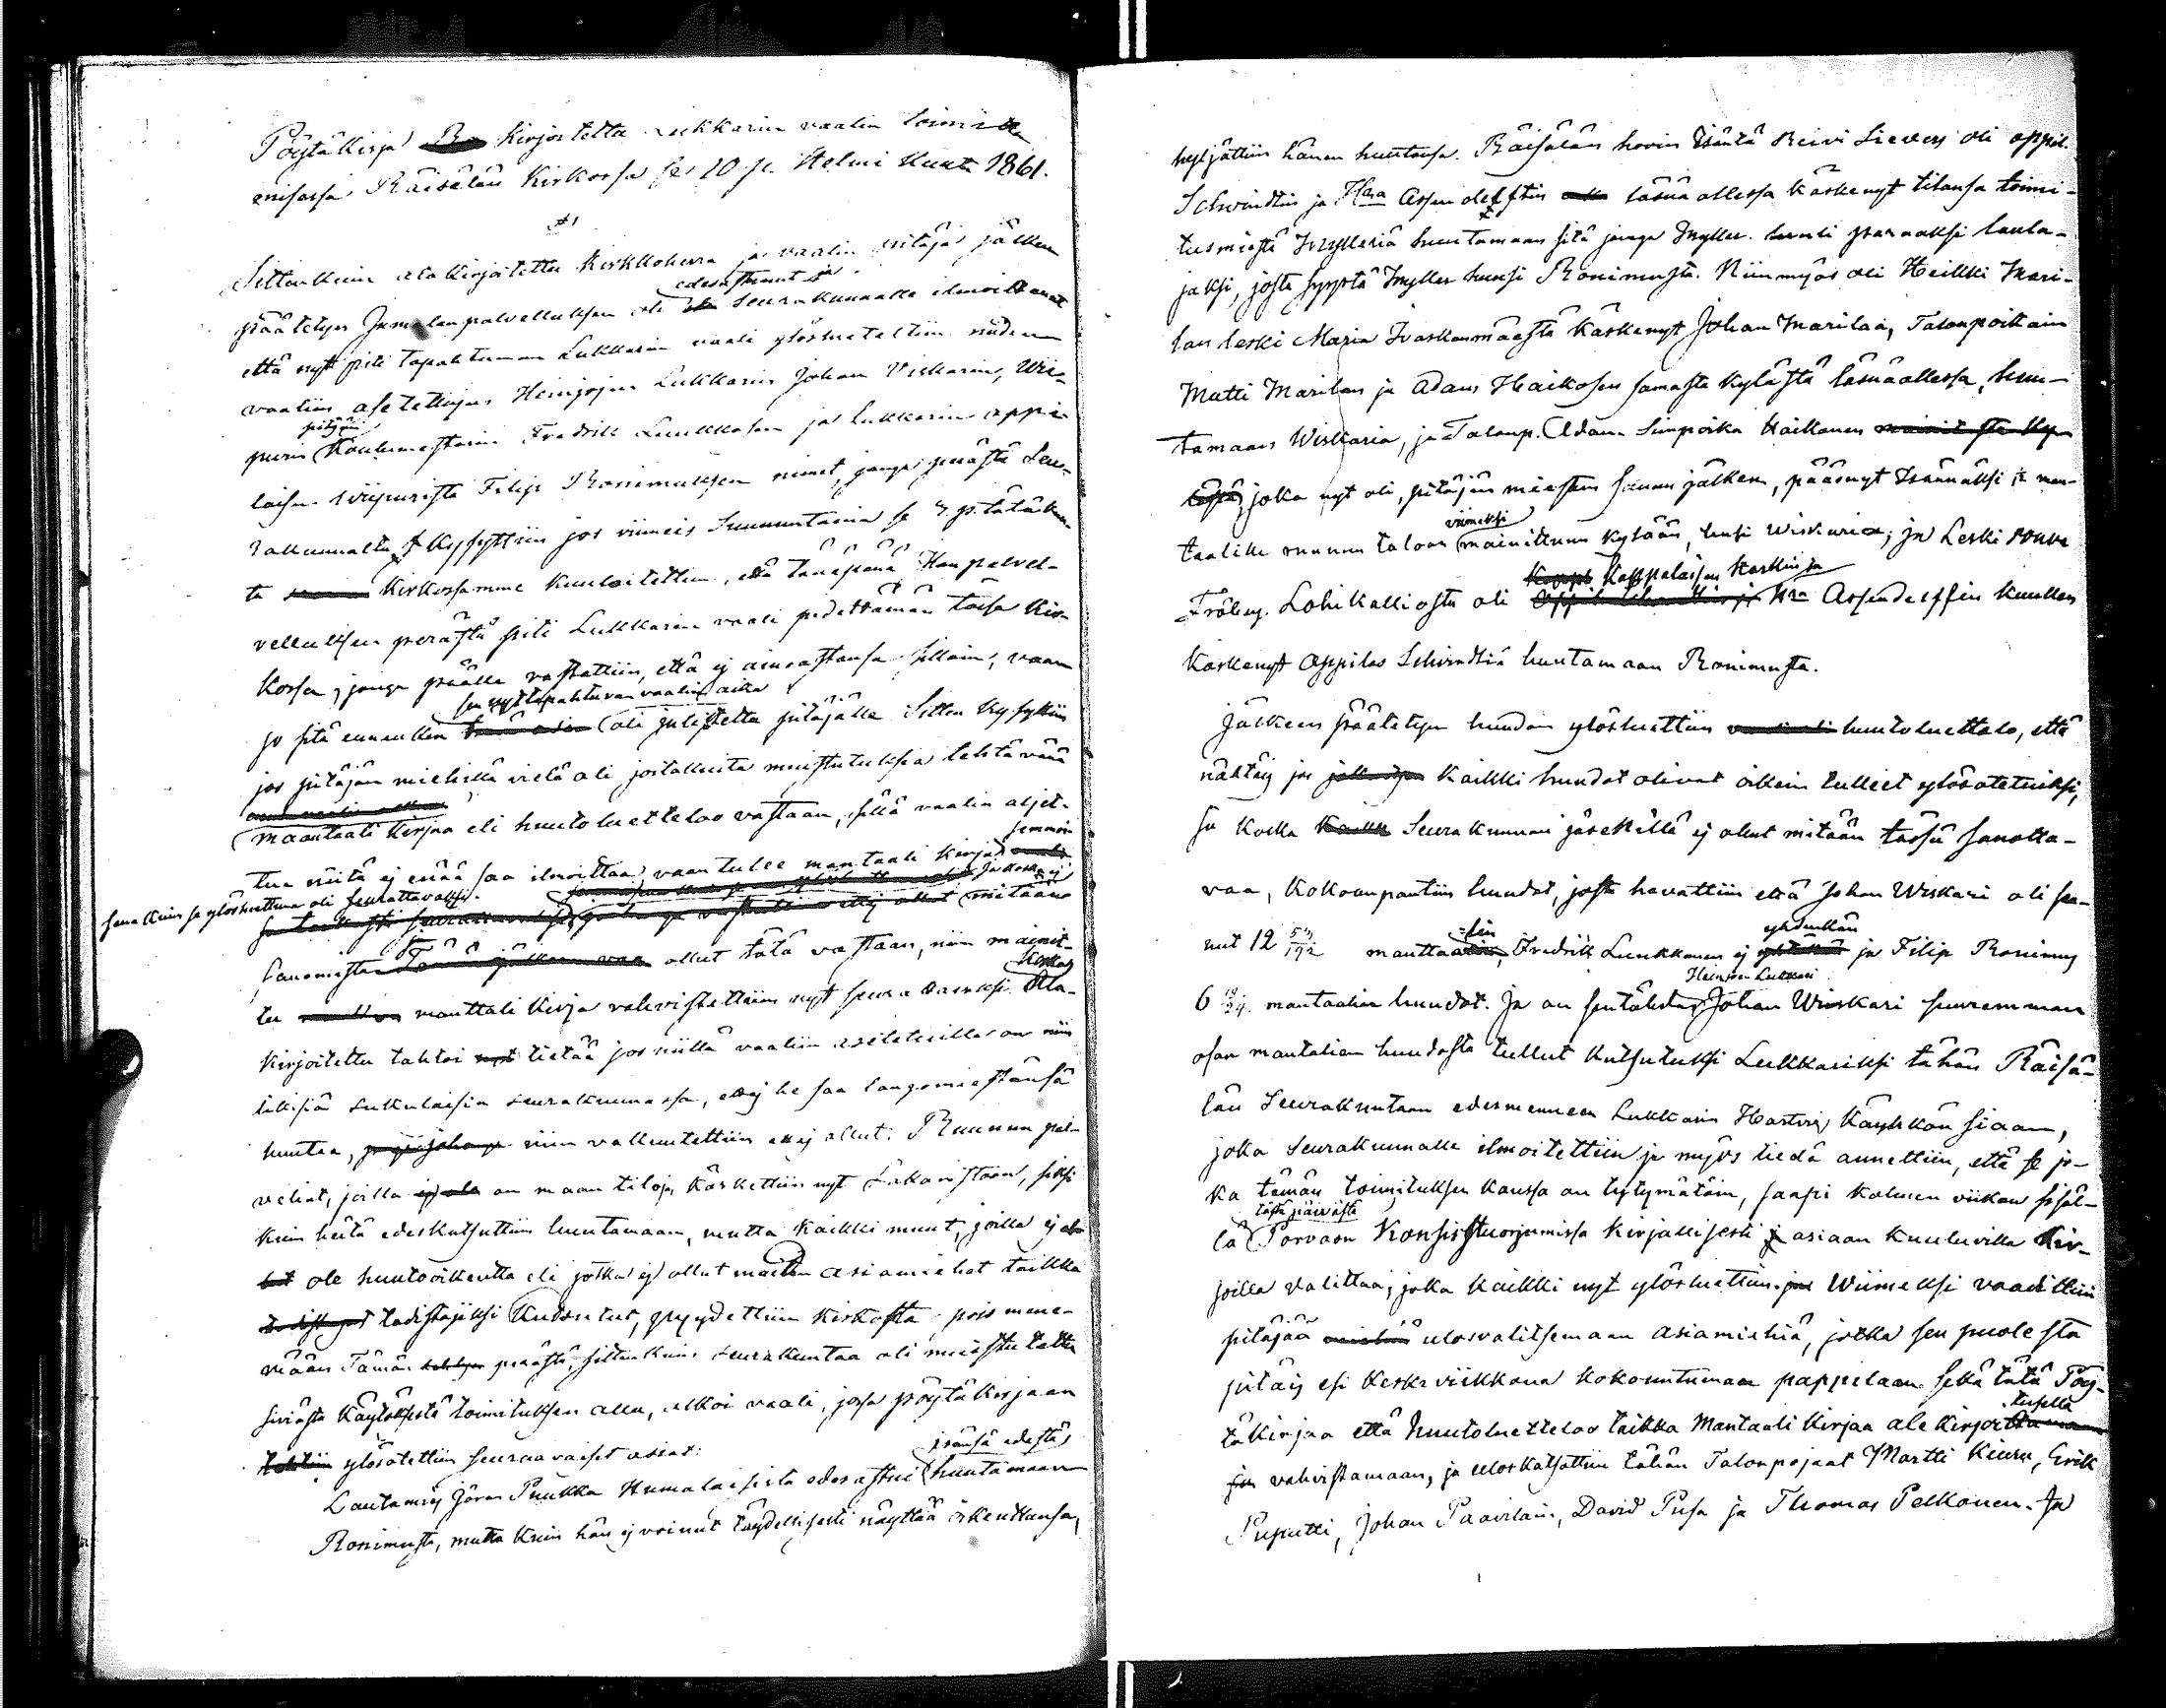 Pöytäkirja kirjoitettu Lukkarin vaalin toimit-
misessa Räisälän Kirkossa se 10 p. Helmi Kuuta 1861.
§1
Sittenkuin ala kirjoitettu Kirkkoherra ja vaalin pitäjä jälkeen
edesastunut ja
päätetyn Jumalanpalveluksen oli Seurakunnalle ilmoittanut
että nyt piti tapahtuman Lukkarin vaali ylösluetettiin niiden
vaaliin asetettujen Heinjojen Lukkarin Johan Wiskarin, Wii-
pitäjän
purin Koulumestarin Fredrik Luukkosen ja Lukkarin appi-
laisen Wiipurista Filip Ronimuksen nimet, jonga perästä Seu-
rakunnalta kysyttiin jos viimeis Sunnuntaina se 3 p. tätä kuu-
ta Kirkossamme kuuloitettiin, että tänäpänä Jumpalvel-
velluksen perästä piti Lukkarin vaali pidettämän tässä Kir-
kossa, jonga päälle vastattiin, että ej ainoastansa silloin, vaan
sen nyt tapahtuvan vaalin aika
jo sitä ennenkin oli julistettu pitäjälle Sitten kysyttiin
jos pitäjän miehillä vielä oli joitakuita muistutuksia tehtävänä
mantaali kirjaa eli huutoluetteloo vastaan, sillä vaalin aljet-
semmoin
tua niitä ej enää saa ilmoittaa, vaan tulee mantaali kirja
Ja koska ej
senkuin se ylösluettuna oli seurattavaksi. mitään
sanomista ollut tätä vastaan, niin mainit-
tu manttali kirja vahvistettiin nyt seurattavaksi. Ala-
kirjoitettu tahtoi tietää jos niillä vaaliin asetetuilla on niin
likisiä sukulaisia seurakunnassa, ettej he saa langomiestänsä
huutaa, niin vakuutettiin ettej ollut. Ruunun pal-
veliat, joilla on maan tiloja, käskettiin nyt Sakaristoon, siksi
kuin heitä edeskutsuttiin huutamaan, mutta kaikki muut, joilla ej
ole huutooikeutta eli jotka ej ollut muitten asiamiehet taikka
todistajiksi kutsutut, pyydettiin kirkosta pois mene-
mään Tämän perästä, sittenkuin seurakuntaa oli muistutettu
siviästä käytöksestä toimituksen alla, alkoi vaali, jossa pöytäkirjaan
ylösotettiin seuraavaiset asiat:
isänsä edestä
Lautamies Jöran Puukka Humalaisista edesastui huutamaan
Ronimusta, mutta kuin hän ej voinut täydellisesti näyttää oikeuttansa,
hyljättiin hänen huutonsa. Räisälän hovin Isäntä Reivi Sievers oli oppil.
Schvindtin ja Hra Assendelfftin läsnä ollessa käskenyt tilansa toimi-
tusmiestä Inylleriä huutamaan sitä jonga Inyller luuli paraaksi laula-
jaksi, josta syystä Inyller huusi Ronimusta. Niin myös oli Heikki Mari-
lan leski Maria Ivaskanmäestä käskenyt Johan Marilaa, Talonpoikain
Matti Marilan ja Adam Haikosen samasta kylästä läsnäollessa, huu-
tamaan Wiskaria, ja Talonp. Adam Simpoika Haikonen
joka nyt oli, pitäjän miesten sanan jälken, päässyt Isännäksi ½ man-
viimeksi
taalille ruunun taloon mainittuun kylään, huusi Wiskaria; ja Leski rouva
Kappalaisen Starkin ja
Fröberg Lohikalliosta oli Hra Assendelffin kuullen
käskenyt Oppilas Schvindtiä huutamaan Ronimusta.
Jälkeen päätetyn huudon ylösluettiin huutoluettelo, että
nähtäis jos kaikki huudot olivat oikein tulleet ylösotetuiksi,
ja koska Seurakunnan jäsenillä ej ollut mitään tässä sanotta-
vaa, kokoonpantiin huudot, josta havattiin että Johan Wiskari oli saa-
yhdenkän
nut 12 53/192 manttalin, Fredrik Luukkonen ej ja Filip Ronimus
Heinjoen Lukkari
6 19/24. mantaalin huudot. Ja on sentähden Johan Wiskari suuremman
osan mantalien huudosta tullut kutsutuksi Lukkariksi tähän Räisä-
län Seurakuntaan edesmenneen Lukkarin Hartvig Käyhkön siaan,
joka Seurakunnalle ilmoitettiin ja myös tiedä annettiin, että se jo-
ka tämän toimituksen kanssa on tytymätöin, saapi kolmen viikon sisäl-
tästä päivästä
lä Porvoon Konsistuorjumissa kirjallisesti asiaan kuuluvilla kir-
joilla valittaa, joka kaikki nyt ylösluettiin. Wiimeksi vaadittiin
pitäjää ulosvalitsemaan asiamiehiä, jotka sen puolesta
pitäis esi keskiviikkona kokountuman pappilaan sekä tätä Pöy-
tuksella
täkirjaa että huutoluetteloo taikka Mantaali kirjaa ale kirjoi-
vahvistamaan, ja uloskatsottiin tähän Talonpojaat Martti Kiuru, Erik
Puputti, Johan Paavilain, David Pusa ja Thomas Pelkonen. Ja